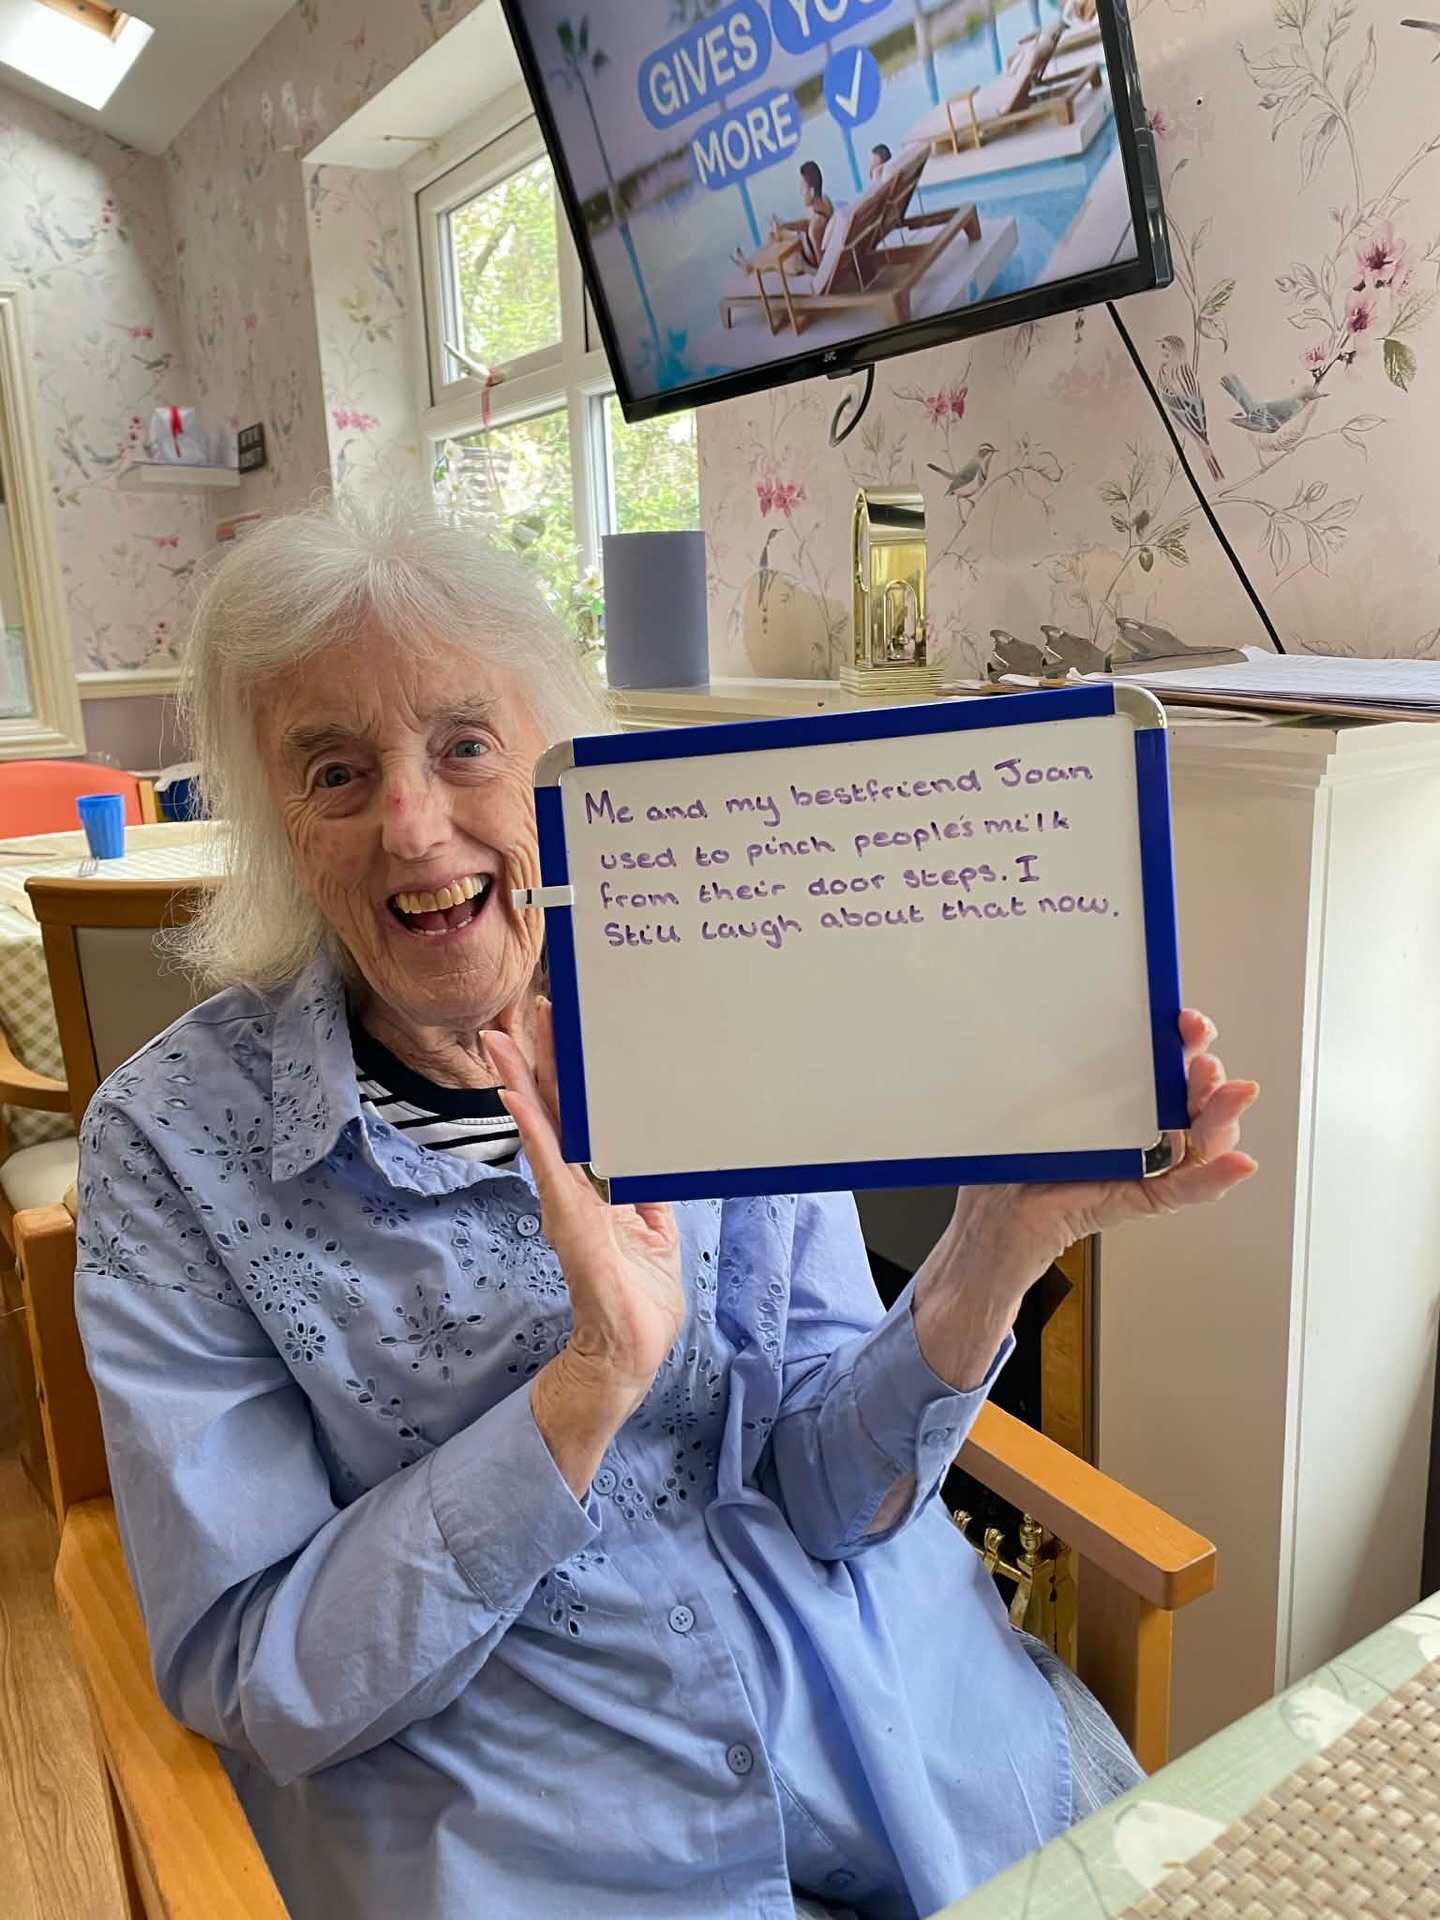 GIVES YOU
MORE
Me and my bestfriend Joan
used to pinch people's milk
from their door steps. I
Still laugh about that now.